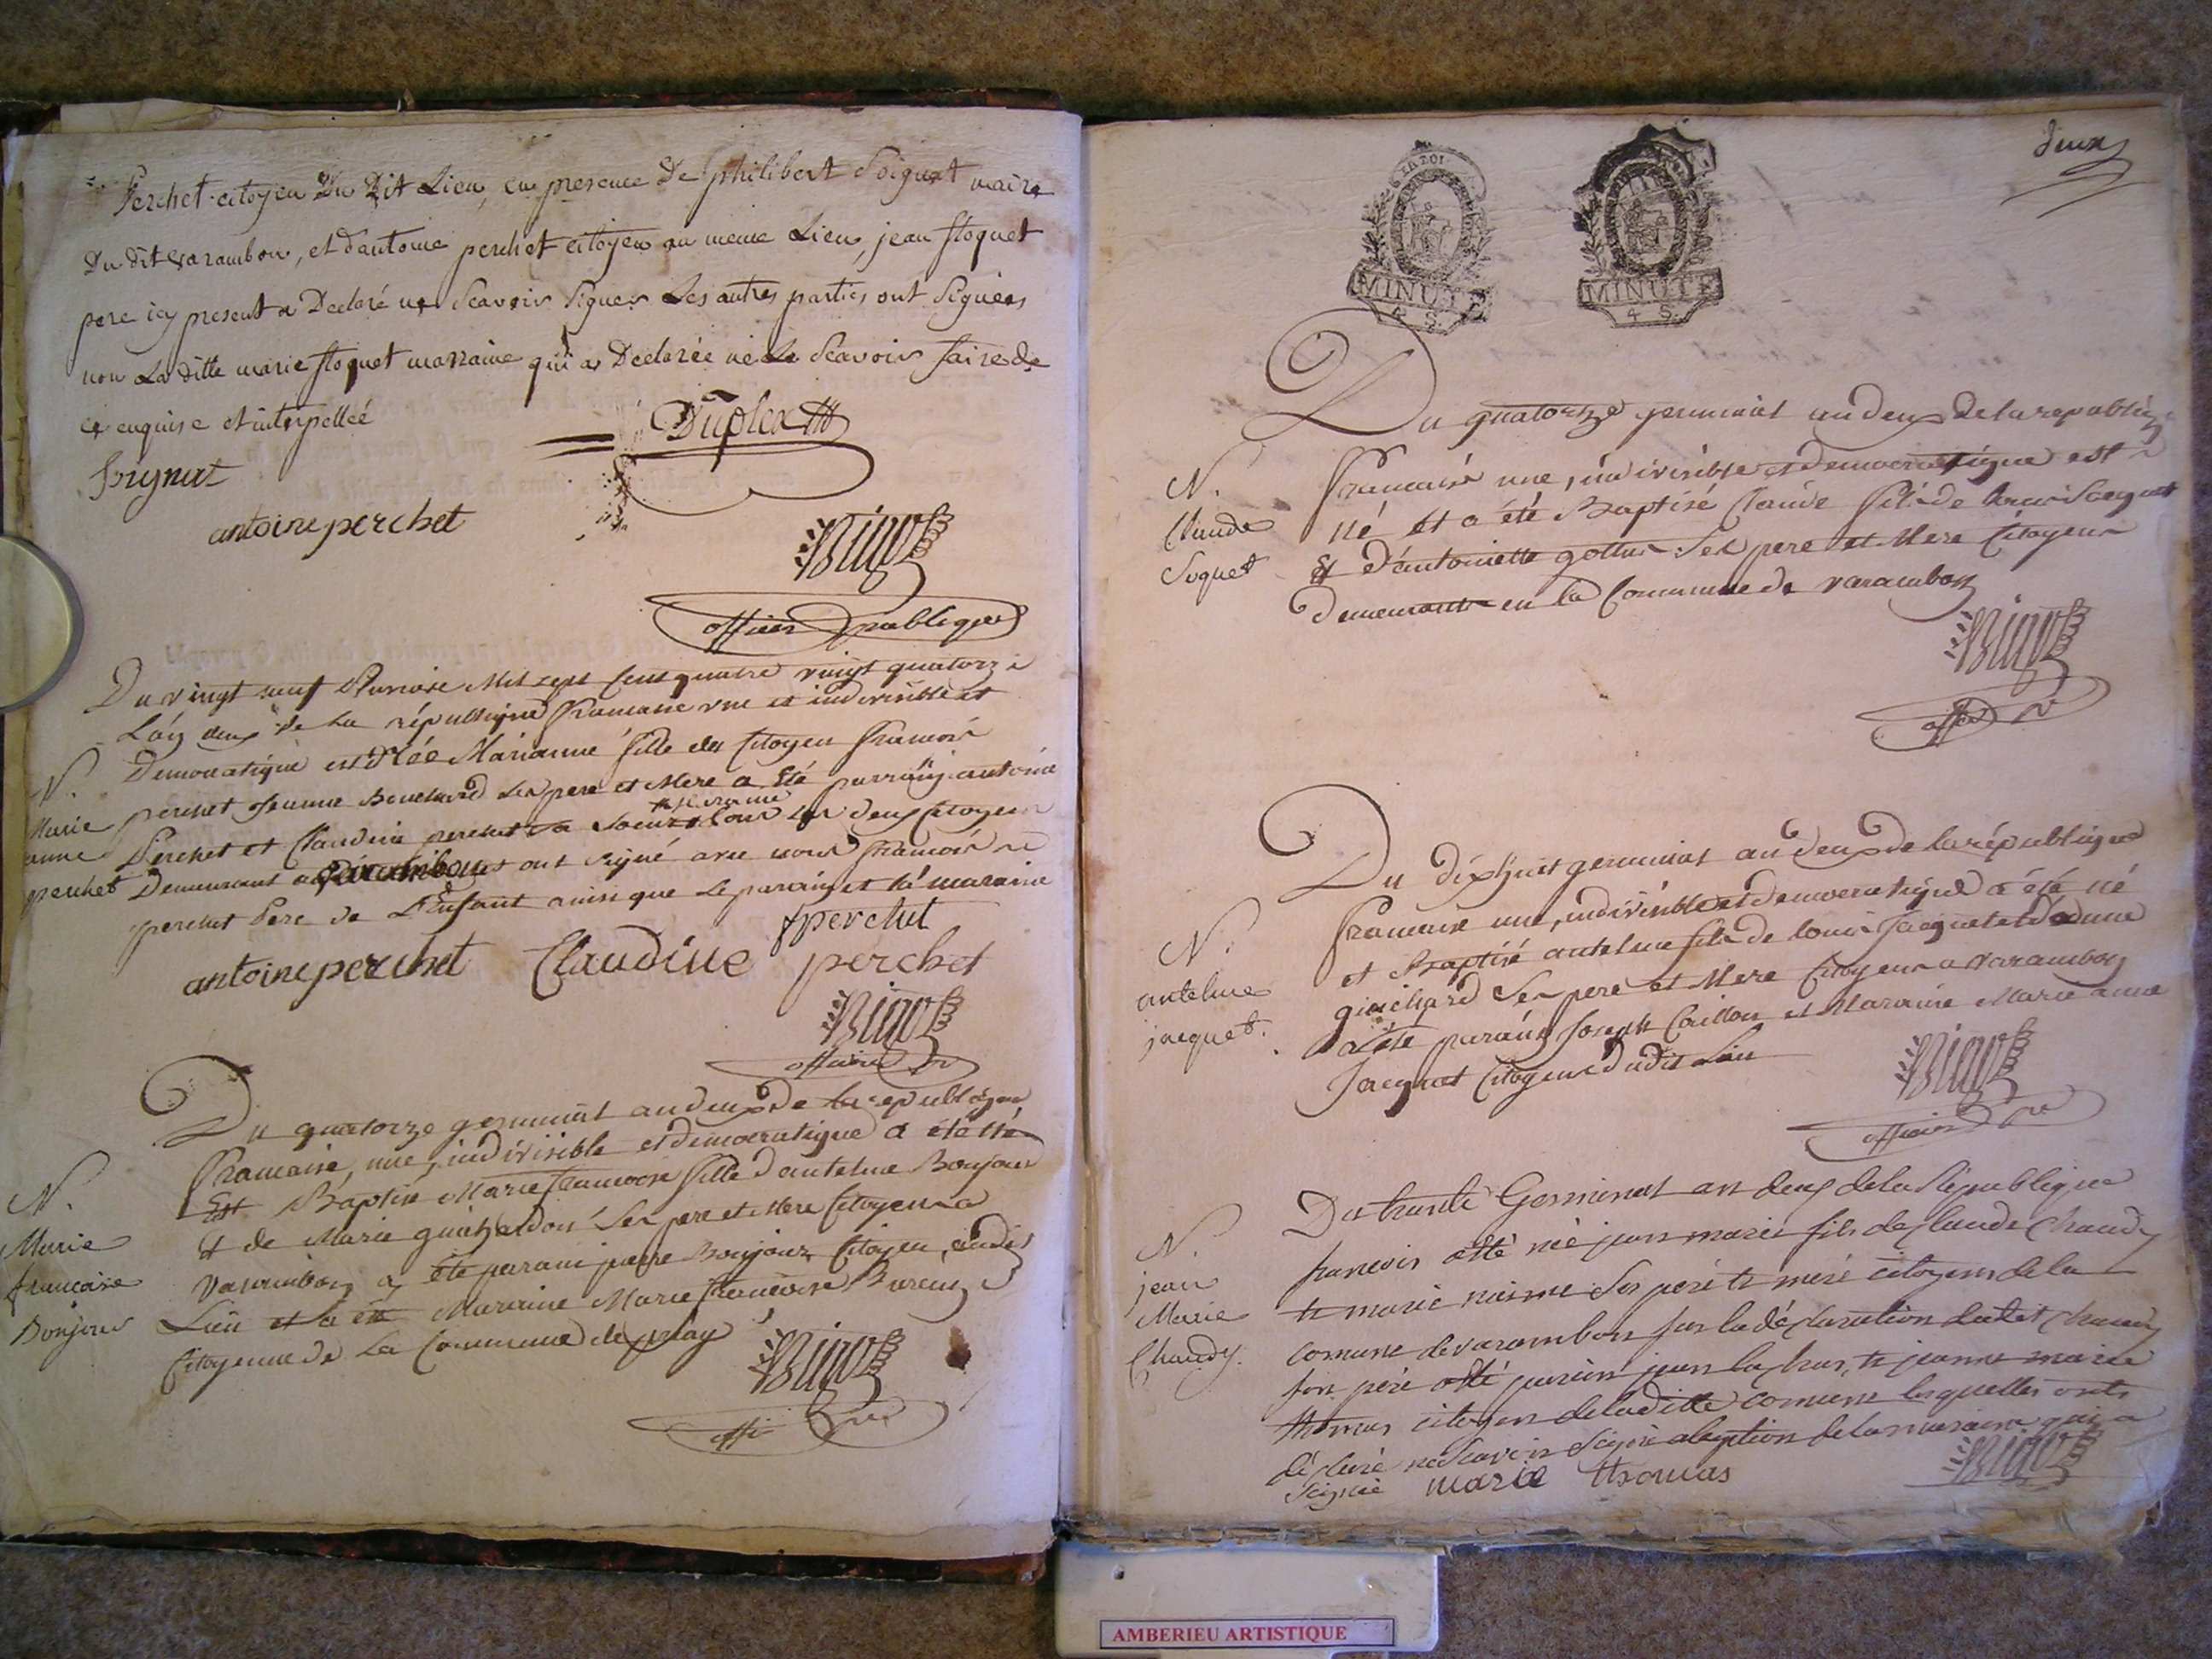 Perchet citoyen Du Dit Lieu, en presence De philibert Soignat maire
Du dit varambon, et d'antoine perchet citoyen au meme Lieu, jean floquet
pere icy present a Declaré ne Scavoir Signer Les autres parties ont Signées
non La ditte marie floquet marraine qui a Declarée ne Le Scavoir faire de
ce enquise et interpellée
Soignat
Duplex
antoine perchet
officier publique
Du vingt neuf Pluviose Mil sept Cent quatre vingt quatorze
L'an deux de La république francaise une et indivisible et
Democratique est Née Marianne fille du Citoyen francois
perchet Jeanne Bouchard ses pere et Mere a été parrain antoine
Perchet et Claudine perchet sa Soeur tous les deux Citoyen
Demeurant a varambon et ont signé avec nous francois
perchet Pere de L'Enfant ainsi que le parain et la maraine
N.
Marie
anne
perchet
fperchet
antoine perchet Claudine perchet
officier
Du quatorze germinal an deux de la republique
francaise, une, indivisible et democratique a été né
Est Baptisé Marie francoise fille d'antelme Bonjour
et de Marie guichardon Ses pere et Mere Citoyens a
varambon a été parain pierre Bonjour Citoyen, dudit
Lieu et a été Maraine Marie francoise
Citoyenne de La Commune de
N.
Marie
francoise
Bonjour
deux
MINUTE
4 S.
MINUTE
4 S.
Du quatorze germinal an deux De la republique
francaise une, indivisible et democratique est
né et a été Baptisé Claude fils de
Et d'antoinette Ses pere et Mere Citoyens
demeurants en la Commune de varambon
N.
Claude
Soquet
Du dix huit germinal an deux de la république
francaise une, indivisible et democratique a été né
et Baptisé antelme fils de louis Jacquet et d'anne
guichard Ses pere et Mere Citoyens a varambon
a été parain Joseph Caillon et Maraine Marie anne
Jacquet Citoyens dudit Lieu
N.
antelme
jacquet.
officier
Du trante Germinal an deux de la République
francois été né jean marie fils de Claude Chaudy
et marie ses peré et meré citoyens de la
comune de varambon sur la déclaration dudit Chaudy
son peré été parain jean et jeanne marie
thomas citoyens de la ditte comune lesquelles onts
déclaré ne scavoir signé de la maraine qui a
Seignié marie thomas
N.
jean
Marie
Chaudy.
AMBERIEU ARTISTIQUE